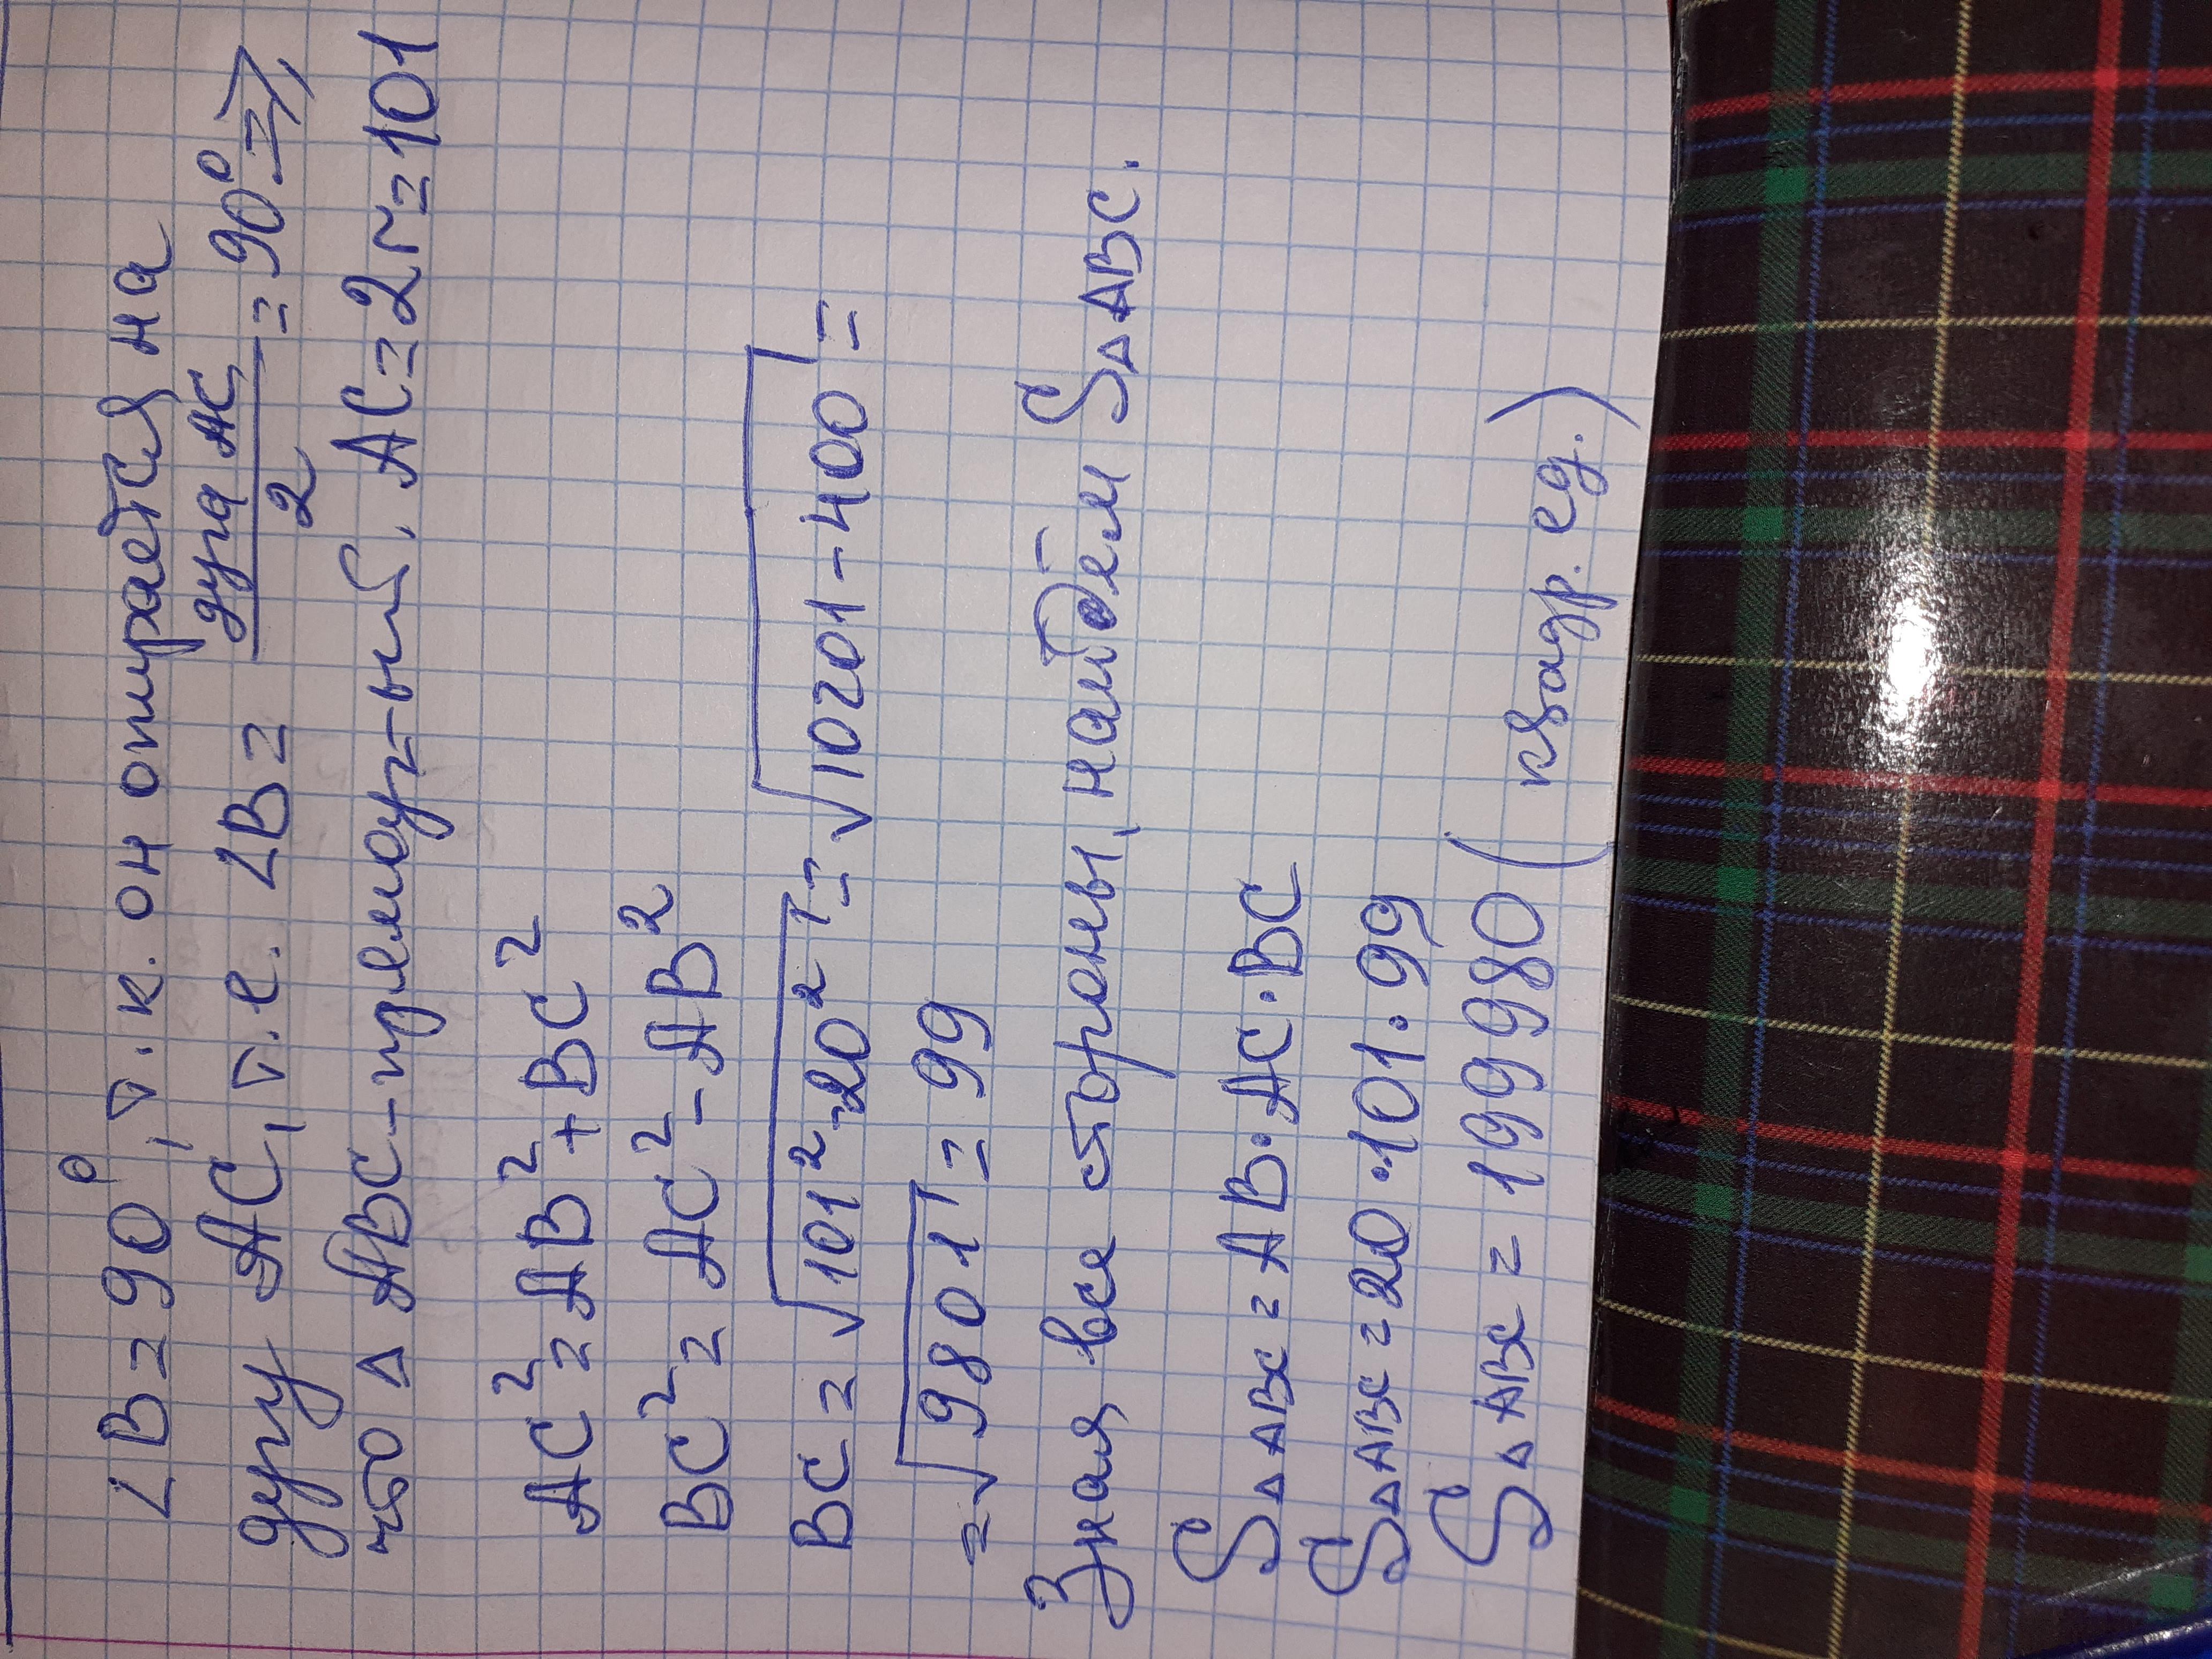 ∠B=90°, т.к. он опирается на
дугу AC, т.е. ∠B= дуга AC/2 =90° ⇒,
что △ABC-прямоуг=ый, AC=2r=101
AC²=AB²+BC²
BC²=AC²-AB²
BC=√101²-20² = √10201-400 =
=√9801 = 99
Зная все стороны, найдём S△ABC.
S△ABC=AB·AC·BC
S△ABC=20·101·99
S△ABC = 199980 (квадр. ед.)